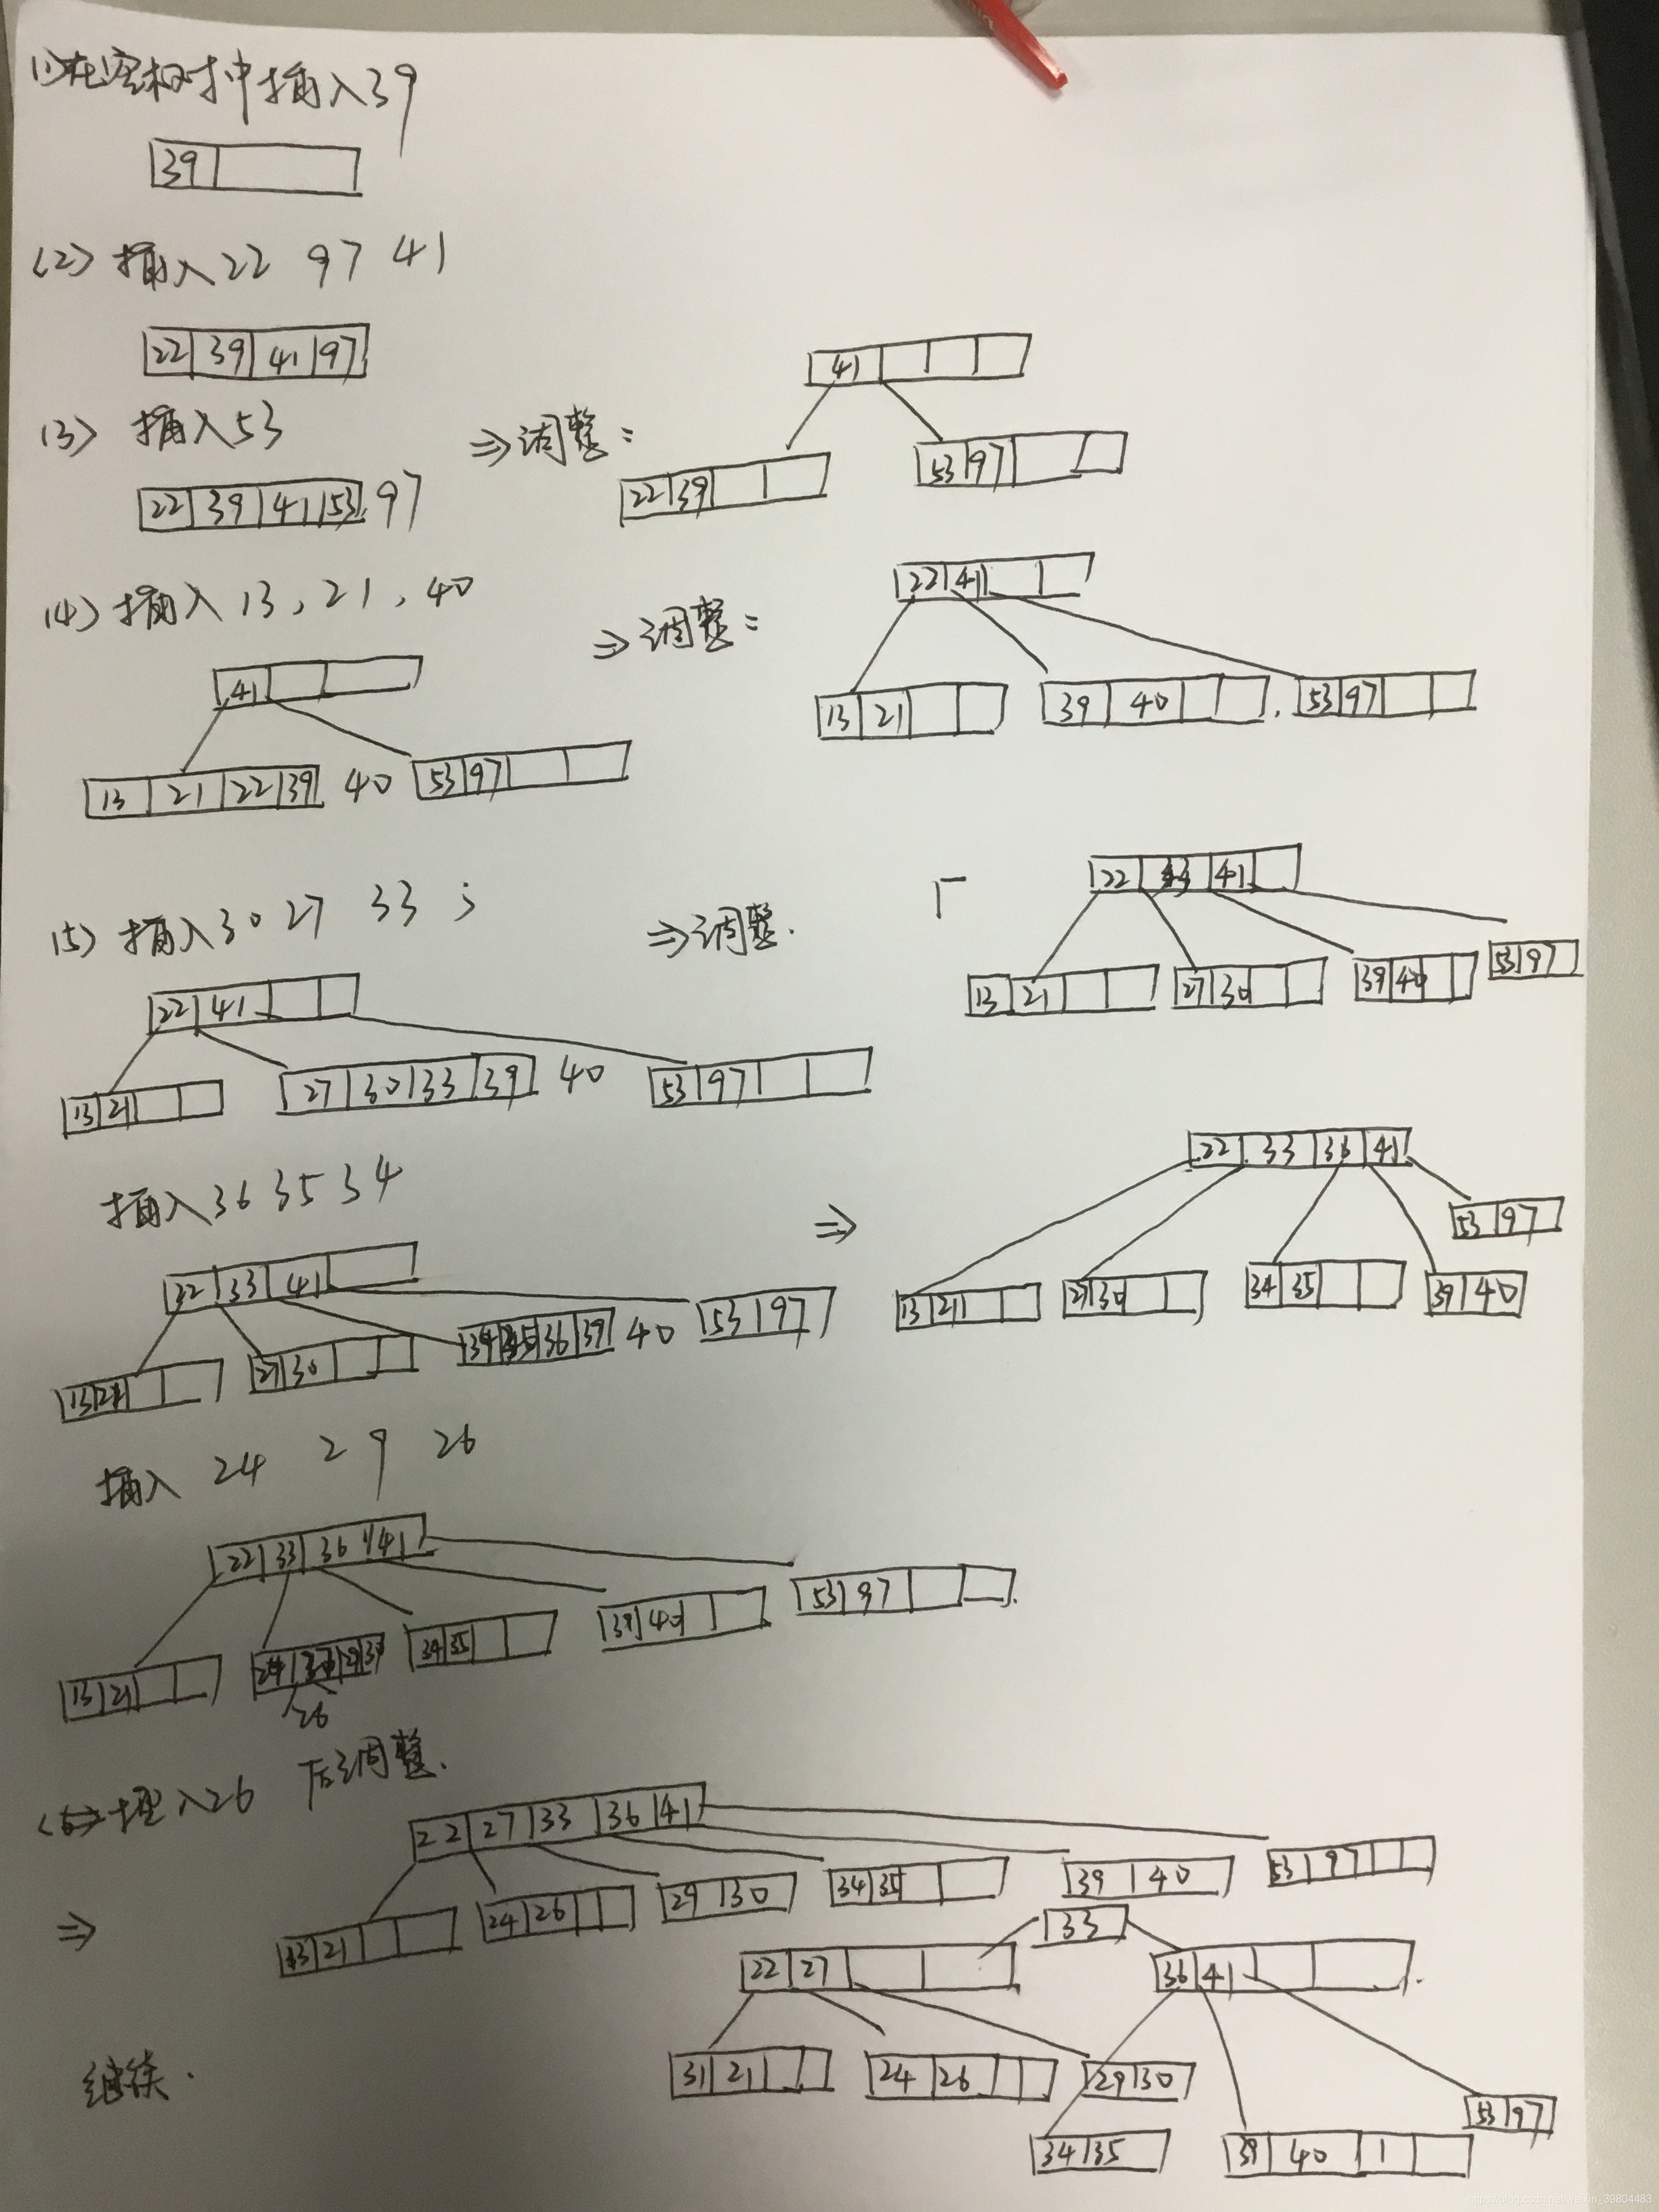 (1)在空树中插入39
39
(2) 插入22 97 41
22 39 41 97
(3) 插入53
22 39 41 53 97
⇒调整:
41
22 39
53 97
(4) 插入13, 21, 40
41
13 21 22 39 40
53 97
⇒调整:
22 41
13 21
39 40
53 97
(5) 插入30 27 33 ;
22 41
13 21
27 30 33 39 40
53 97
⇒调整.
22 33 41
13 21
27 30
39 40
53 97
插入36 35 34
22 33 41
13 21
27 30
34 35 36 39 40
53 97
⇒
22 33 36 41
13 21
27 30
34 35
39 40
53 97
插入 24 29 26
22 33 36 41
13 21
26
34 35
39 40
53 97
入26 后调整.
22 27 33 36 41
13 21
24 26
29 30
34 35
39 40
53 97
⇒
33
22 27
36 41
31 21
24 26
29 30
34 35
39 40 1
53 97
继续.